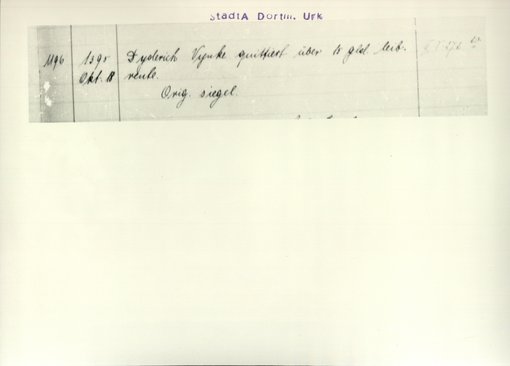 StadtA Dortm. Urk
1196 1395 Dyderich Vynke quittiert über 10 gld. Leib-
Okt. 18 rente.
Orig. siegel.